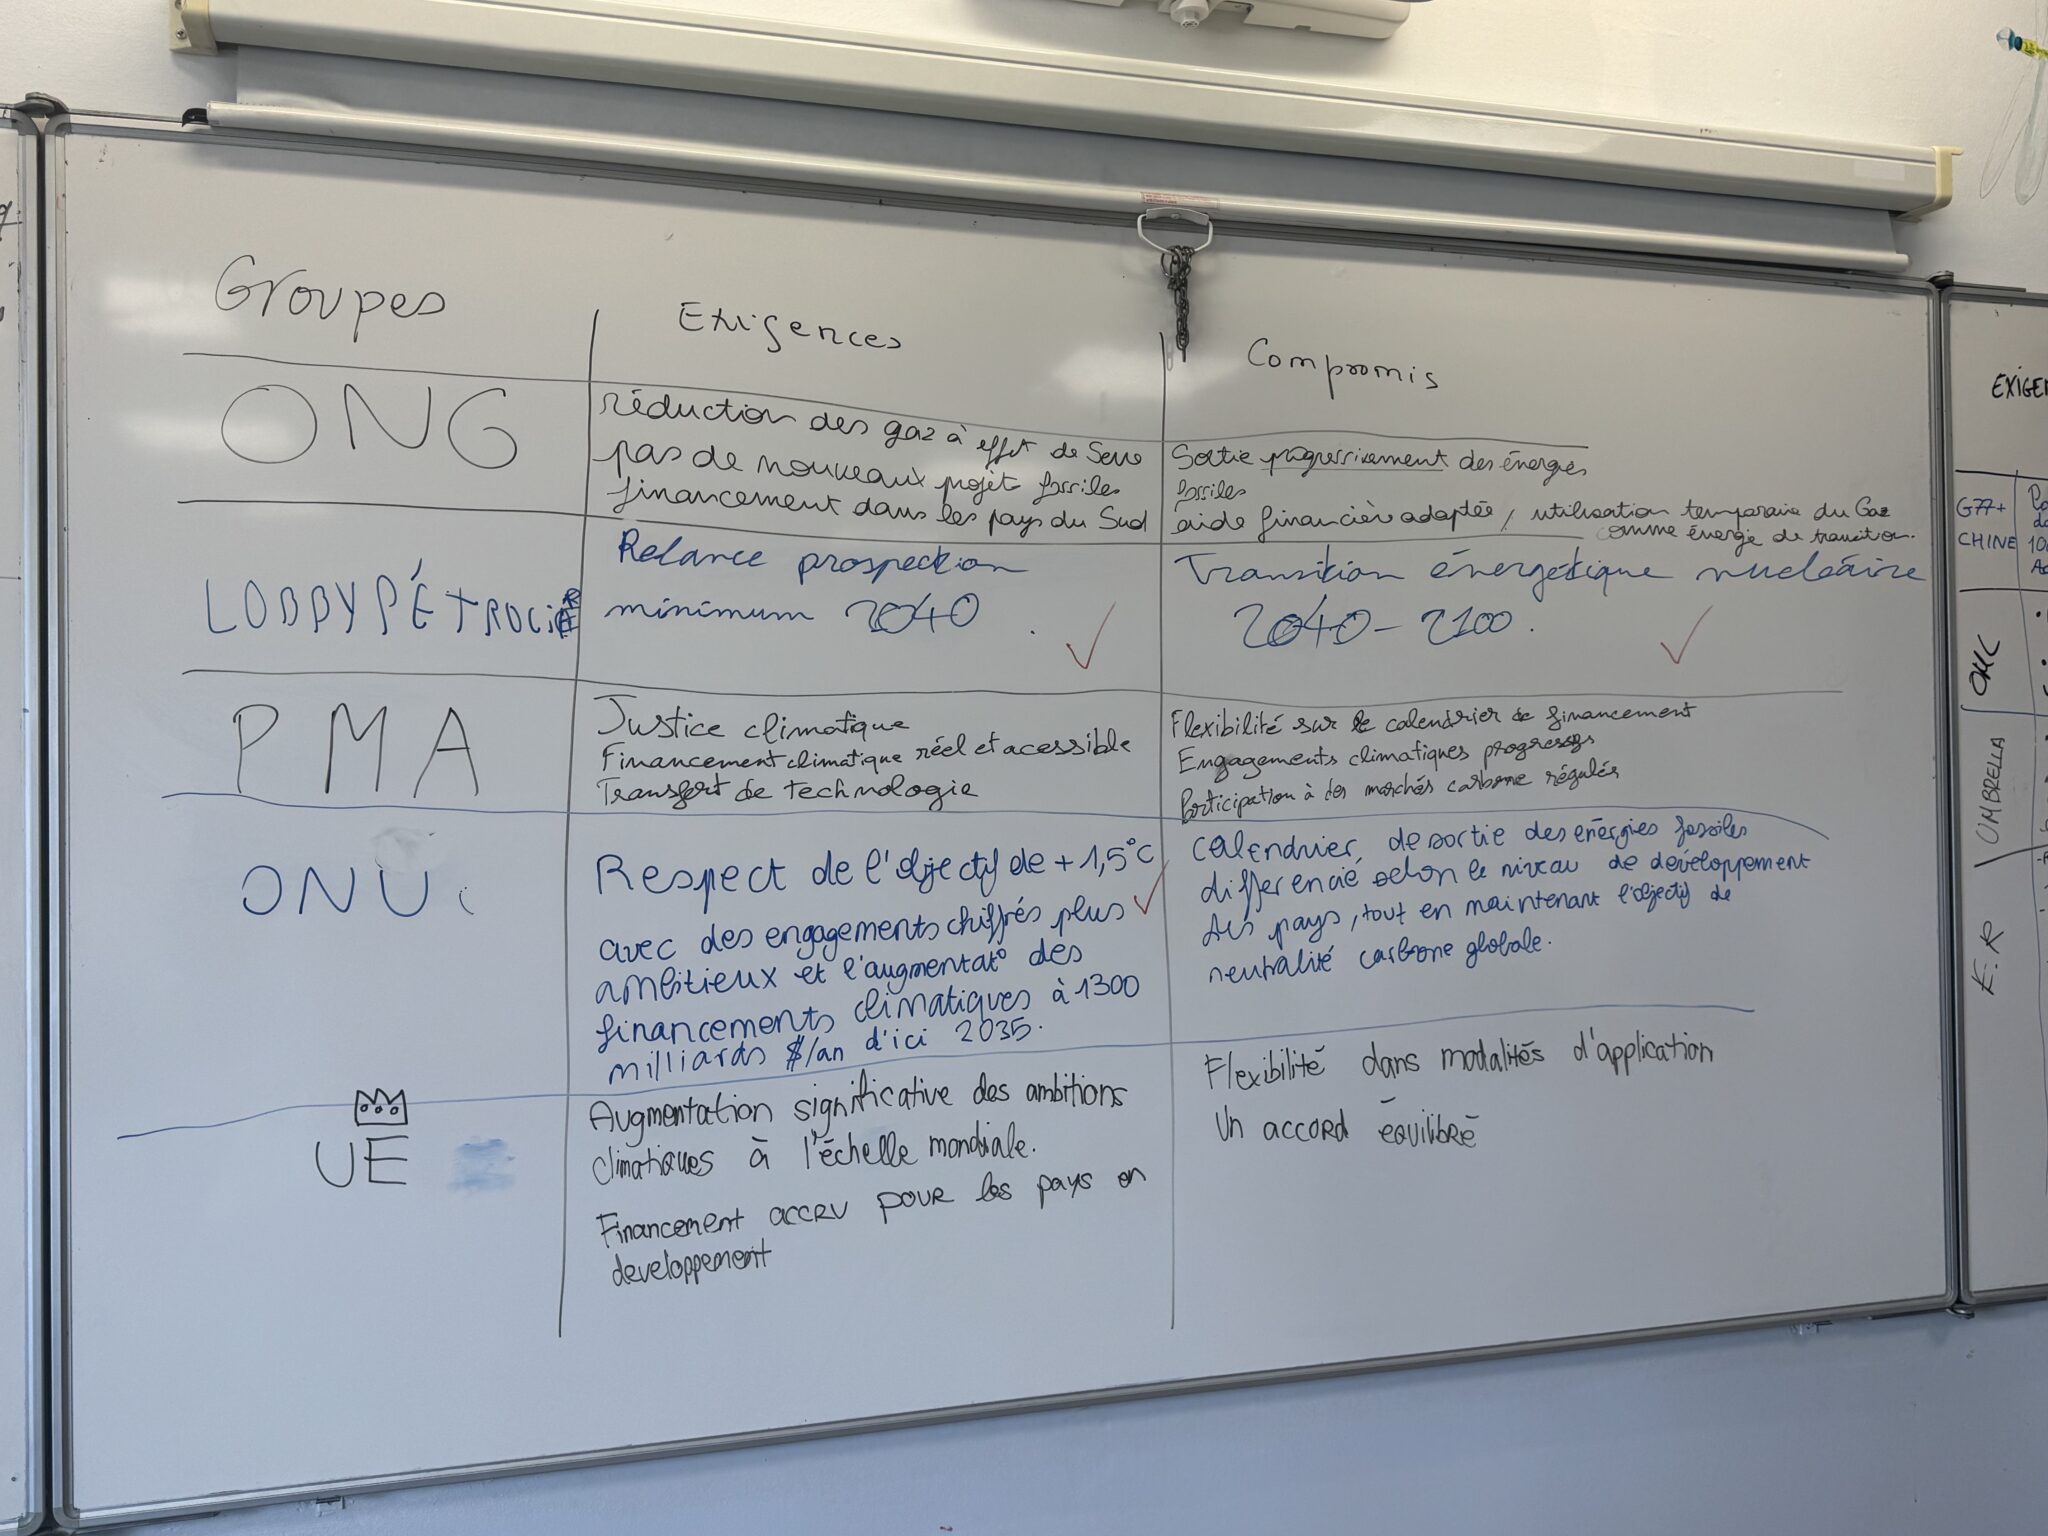 Groupes
Exigences
Compromis
ONG
réduction des gaz à effet de Serre
pas de nouveaux projet fossiles
financement dans les pays du Sud
Sortie progressivement des énergies
fossiles
aide financière adaptée, utilisation temporaire du Gaz
comme énergie de transition.
LOBBY PÉTROLIER
Relance prospection
minimum 2040.
Transition énergétique nucléaire
2040-2100.
PMA
Justice climatique
Financement climatique réel et acessible
Transfert de technologie
Flexibilité sur le calendrier de financement
Engagements climatiques progressifs
Participation à des marchés carbone régulés
ONU
Respect de l'objectif de +1,5°C
avec des engagements chiffrés plus
ambitieux et l'augmentat° des
financements climatiques à 1300
milliards $/an d'ici 2035.
Calendrier de sortie des énergies fossiles
differencié selon le niveau de développement
des pays, tout en maintenant l'objectif de
neutralité carbone globale.
UE
Augmentation significative des ambitions
climatiques à l'échelle mondiale.
Financement accru pour les pays en
developpement
Flexibilité dans modalités d'application
Un accord équilibré
EXIGEN
G77+
CHINE
OMC
UMBRELLA
E.R